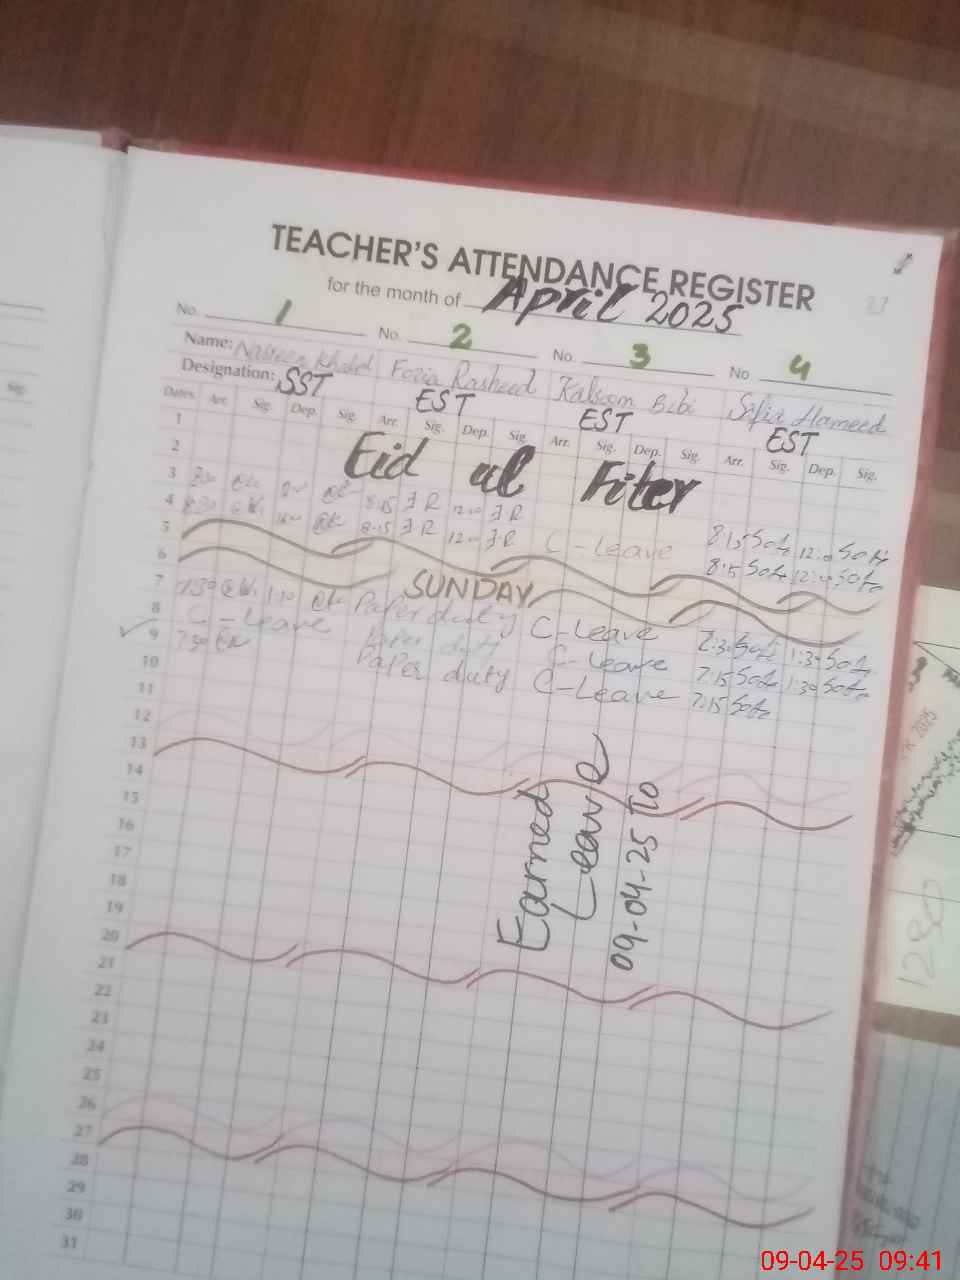 TEACHER'S ATTENDANCE REGISTER
for the month of April 2025
No. 1 No. 2 No. 3 No 4
Name: Nasreen Khalid Fozia Rasheed Kalsoom Bibi Safia Hameed
Designation: SST EST EST EST
Dates. Arr. Sig. Dep. Sig. Arr. Sig. Dep. Sig. Arr. Sig. Dep. Sig. Arr. Sig. Dep. Sig.
1
2 Eid al Fiter
3 8:15 F.R 12:00 F.R
4 8:30 8:15 F.R 12:00 F.R C-Leave 8:15 12:00
5 8:15 12:00
6 SUNDAY
7 7:30 1:30 Paper duty C-Leave 7:30 1:30
8 C-Leave Paper duty C-Leave 7:15 1:30
9 7:30 Paper duty C-Leave 7:15
10
11
12
13
14
15
16
17
18
19
20
21
22
23
24
25
26
27
28
29
30
31
Earned
Leave
09-04-25 To
Sig.
2025
1280
09-04-25 09:41